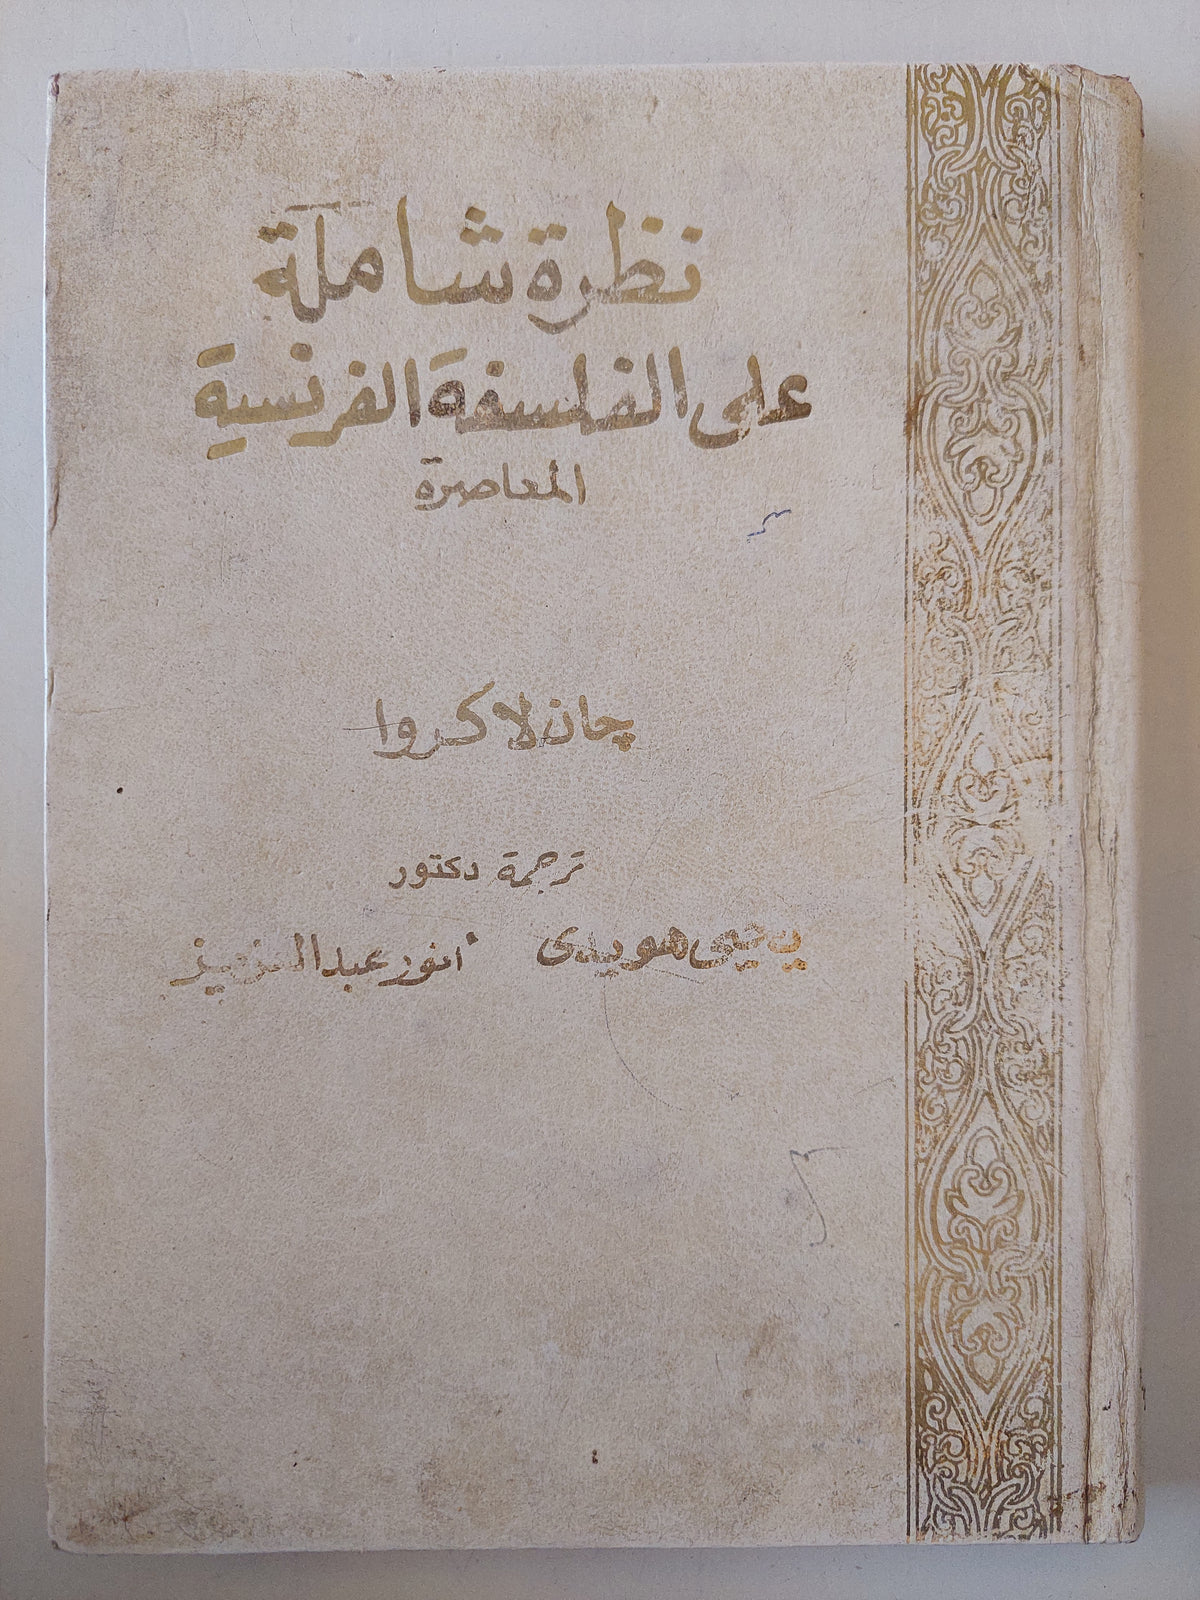 نظرة شاملة
على الفلسفة الفرنسية
المعاصرة
چان لاكروا
ترجمة دكتور
يحيى هويدى أنور عبد العزيز